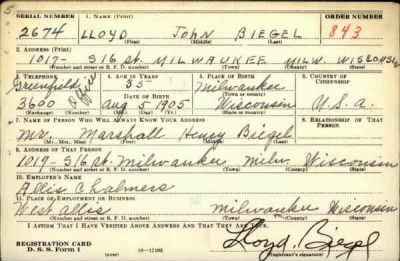 SERIAL NUMBER 1. NAME (Print) ORDER NUMBER
2674 LLOYD JOHN BIEGEL 843
(First) (Middle) (Last)
2. ADDRESS (Print)
1017- S 16 st. MILWAUKEE MILW. WISCONSIN
(Number and street or R. F. D. number) (Town) (County) (State)
3. TELEPHONE 4. AGE IN YEARS 5. PLACE OF BIRTH 6. COUNTRY OF CITIZENSHIP
Greenfield 35 Milwaukee
office DATE OF BIRTH (Town or county)
3600 Aug 5 1905 Wisconsin U.S.A.
(Exchange) (Number) (Mo.) (Day) (Yr.) (State or country)
7. NAME OF PERSON WHO WILL ALWAYS KNOW YOUR ADDRESS 8. RELATIONSHIP OF THAT PERSON
Mr. Marshall Henry Biegel
(Mr., Mrs., Miss) (First) (Middle) (Last)
9. ADDRESS OF THAT PERSON
1017- S 16 st. Milwaukee Milw. Wisconsin
(Number and street or R. F. D. number) (Town) (County) (State)
10. EMPLOYER'S NAME
Allis Chalmers
11. PLACE OF EMPLOYMENT OR BUSINESS
West Allis Milwaukee Wisconsin
(Number and street or R. F. D. number) (Town) (County) (State)
I AFFIRM THAT I HAVE VERIFIED ABOVE ANSWERS AND THAT THEY ARE TRUE.
REGISTRATION CARD
D. S. S. Form 1 (over) 16-17105 Lloyd Biegel
(Registrant's signature)